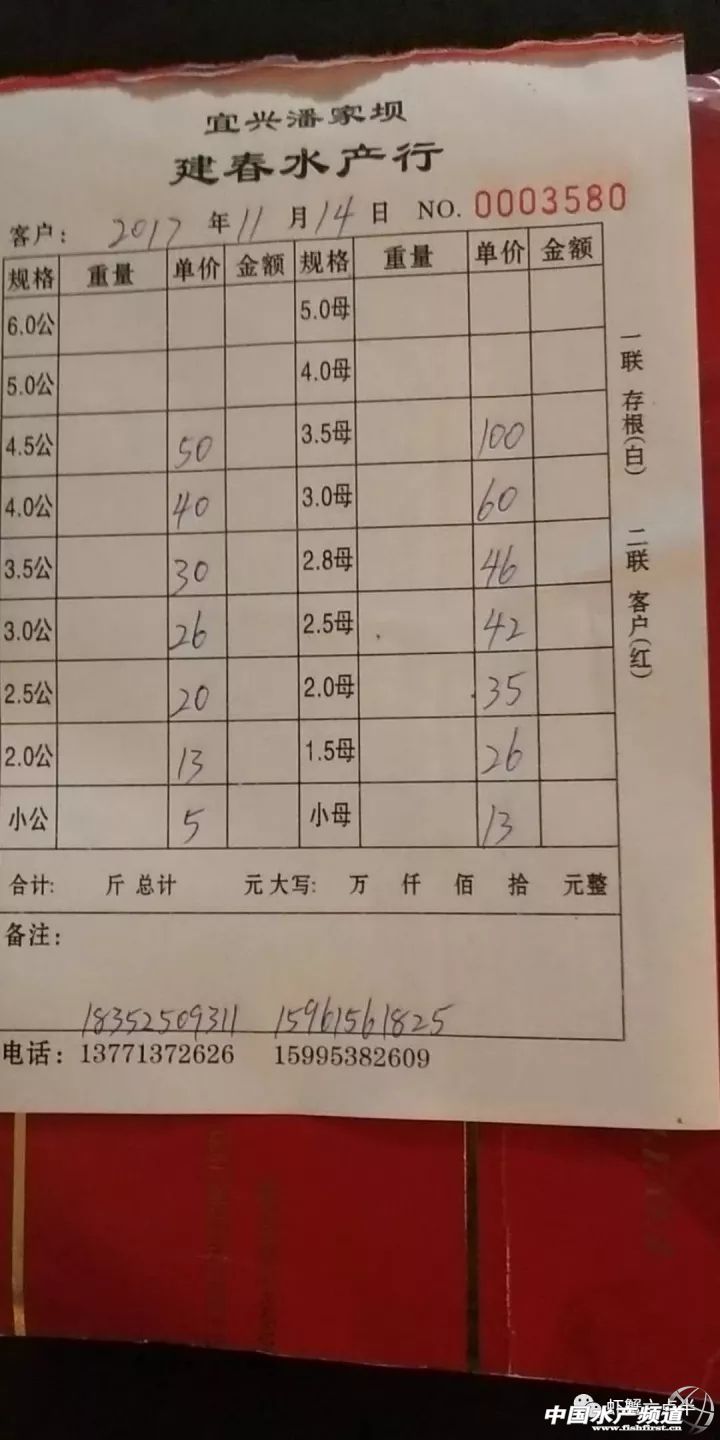 宜兴潘家坝
建春水产行
客户： 2017 年 11 月 14 日 NO. 0003580
规格 重量 单价 金额 规格 重量 单价 金额
6.0公 5.0母
5.0公 4.0母
4.5公 50 3.5母 100
4.0公 40 3.0母 60
3.5公 30 2.8母 46
3.0公 26 2.5母 42
2.5公 20 2.0母 35
2.0公 13 1.5母 26
小公 5 小母 13
合计: 斤 总计 元 大写: 万 仟 佰 拾 元整
备注：
18352509311 15961561825
电话：13771372626 15995382609
一联 存根(白) 二联 客户(红)
虾蟹六点半
中国水产频道
www.fishfirst.cn